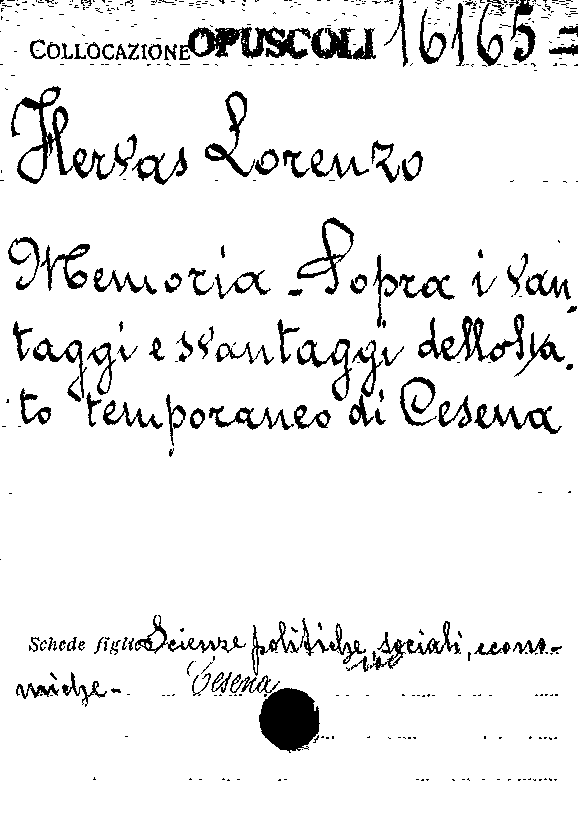 COLLOCAZIONE OPUSCOLI 16165 =
Hervas Lorenzo
Memoria - Sopra i van-
taggi e svantaggi dello Sta-
to temporaneo di Cesena
Schede figlie Scienze politiche, sociali, econo-
miche - Cesena